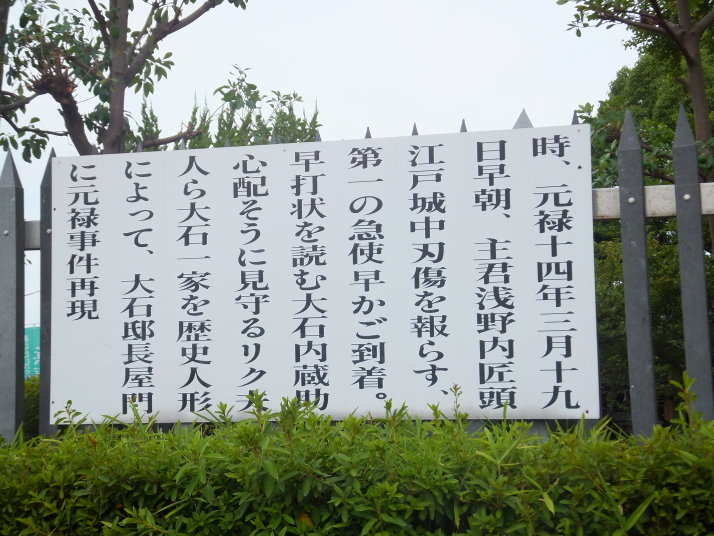 時、元禄十四年三月十九
日早朝、主君浅野内匠頭
江戸城中刃傷を報らす、
第一の急使早かご到着。
早打状を読む大石内蔵助
心配そうに見守るリク夫
人ら大石一家を歴史人形
によって、大石邸長屋門
に元禄事件再現